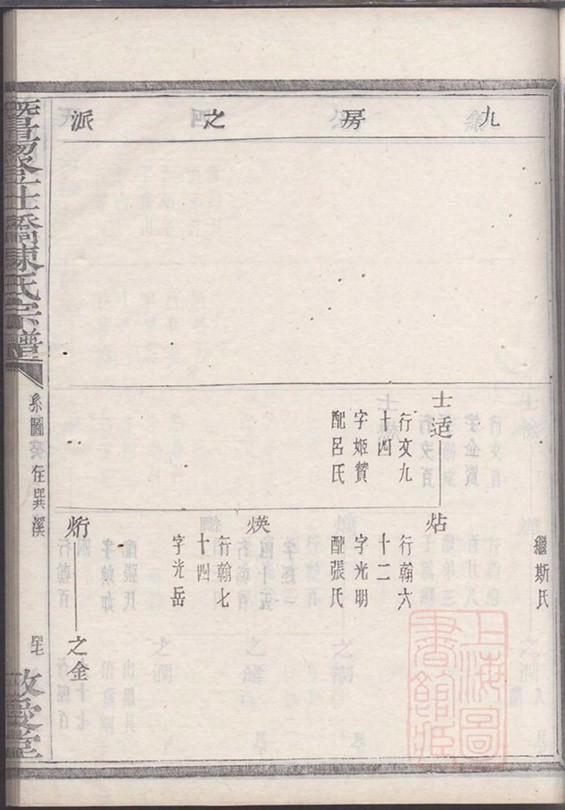 九房之派
士适
行文九
十四
字姬贊
配呂氏
繼斯氏
炶
行翰六
十二
字光明
配張氏
煐
行翰七
十四
字光岳
烆
之金
登仕橋陳氏宗譜
系圖
在巽溪
敬愛堂
上海圖書館藏